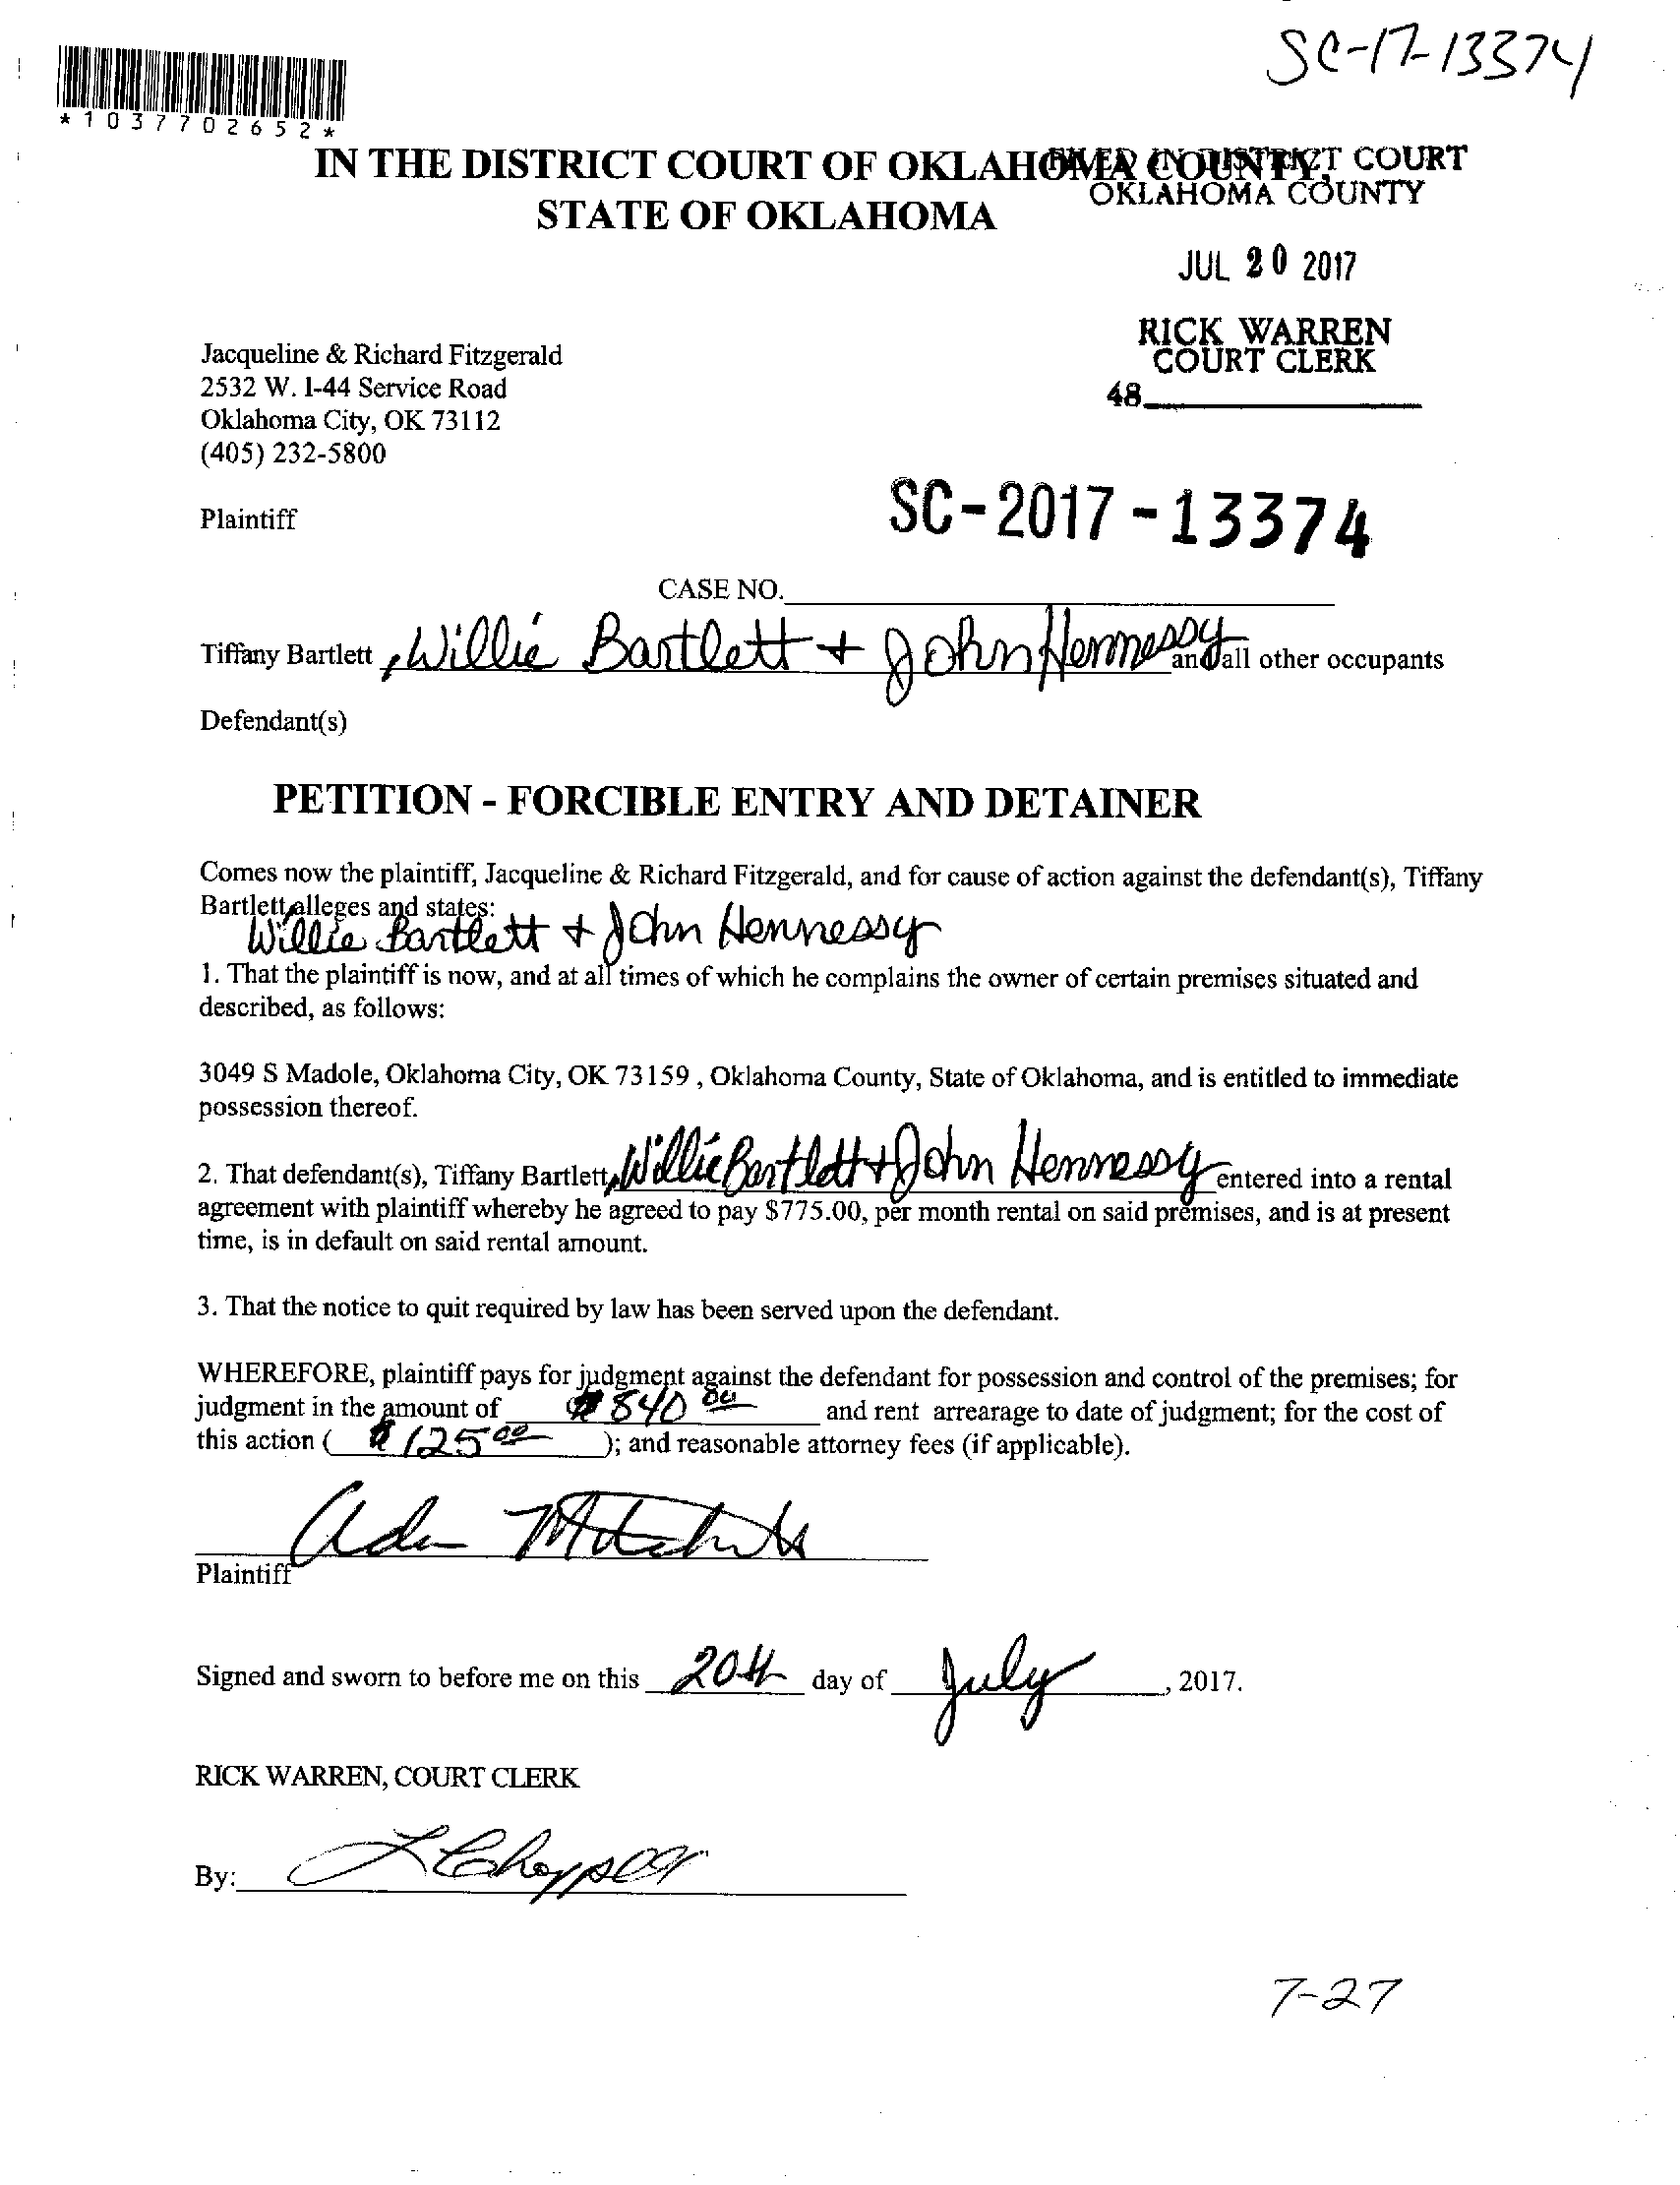 SC-17-13374
*1037702652*
IN THE DISTRICT COURT OF OKLAHOMA COUNTY,
STATE OF OKLAHOMA
FILED IN DISTRICT COURT
OKLAHOMA COUNTY
JUL 20 2017
RICK WARREN
COURT CLERK
48
Jacqueline & Richard Fitzgerald
2532 W. I-44 Service Road
Oklahoma City, OK 73112
(405) 232-5800
Plaintiff
SC-2017-13374
CASE NO.
Tiffany Bartlett , Willie Bartlett + John Hennessy and all other occupants
Defendant(s)
PETITION - FORCIBLE ENTRY AND DETAINER
Comes now the plaintiff, Jacqueline & Richard Fitzgerald, and for cause of action against the defendant(s), Tiffany
Bartlett, alleges and states:
Willie Bartlett + John Hennessy
1. That the plaintiff is now, and at all times of which he complains the owner of certain premises situated and
described, as follows:
3049 S Madole, Oklahoma City, OK 73159 , Oklahoma County, State of Oklahoma, and is entitled to immediate
possession thereof.
2. That defendant(s), Tiffany Bartlett, Willie Bartlett + John Hennessy entered into a rental
agreement with plaintiff whereby he agreed to pay $775.00, per month rental on said premises, and is at present
time, is in default on said rental amount.
3. That the notice to quit required by law has been served upon the defendant.
WHEREFORE, plaintiff pays for judgment against the defendant for possession and control of the premises; for
judgment in the amount of $840 00 and rent arrearage to date of judgment; for the cost of
this action ( $125 00 ); and reasonable attorney fees (if applicable).
Plaintiff
Signed and sworn to before me on this 20th day of July , 2017.
RICK WARREN, COURT CLERK
By:
7-27